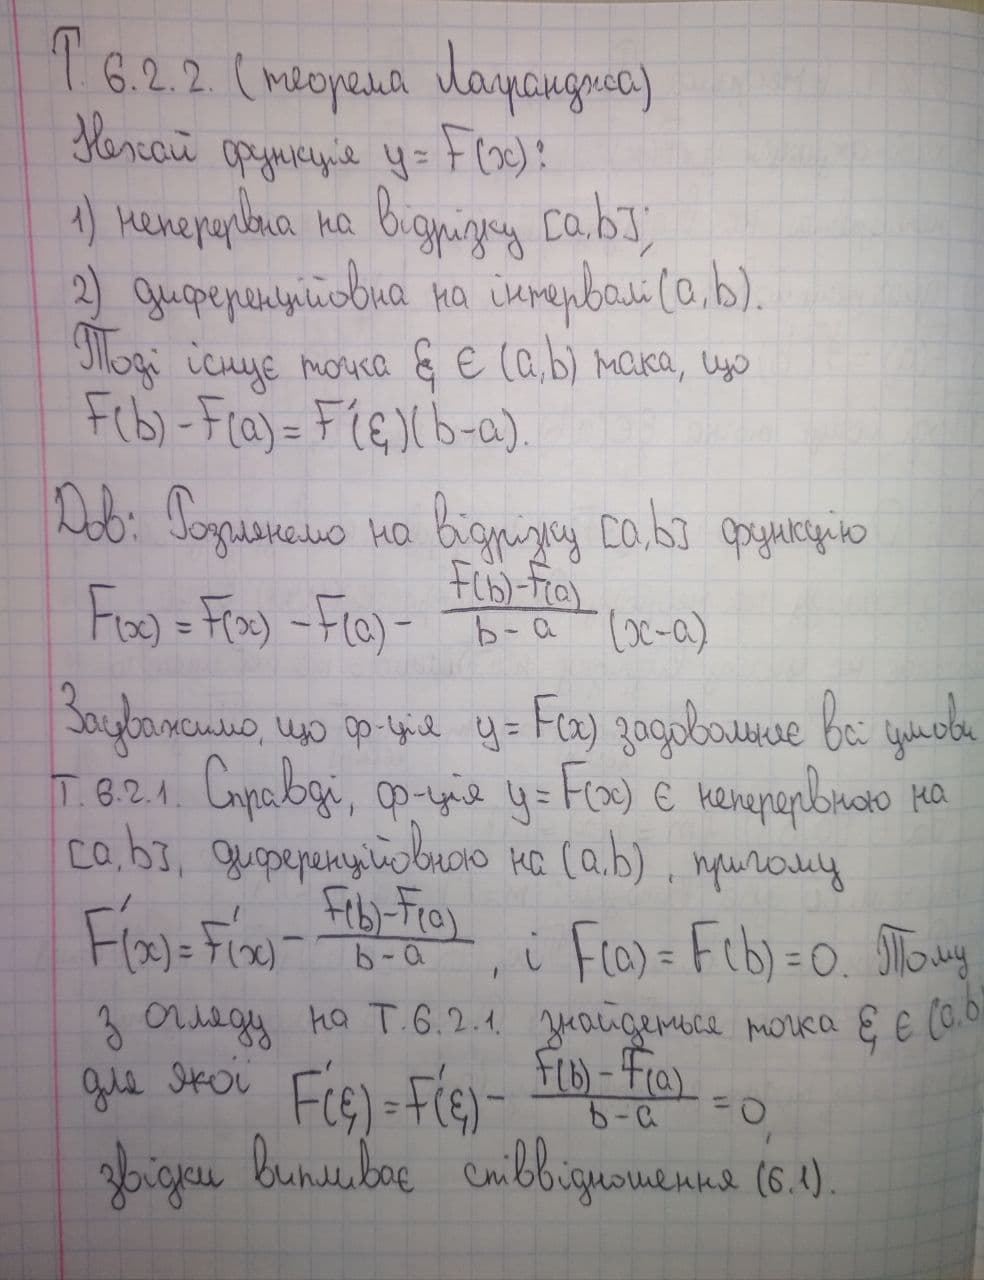 Т. 6.2.2. (теорема Лагранджа)
Нехай функція y = F(x):
1) неперервна на відрізку [a,b];
2) диференційовна на інтервалі (a,b).
Тоді існує точка ξ ∈ (a,b) така, що
F(b) - F(a) = F'(ξ)(b-a).
Дов: Розглянемо на відрізку [a,b] функцію
F(x) = F(x) - F(a) - \frac{F(b)-F(a)}{b-a} (x-a)
Зауважимо, що ф-ція y = F(x) задовольняє всі умови
Т. 6.2.1. Справді, ф-ція y = F(x) є неперервною на
[a,b], диференційовною на (a,b), причому
F'(x) = F'(x) - \frac{F(b)-F(a)}{b-a}, і F(a) = F(b) = 0. Тому
з огляду на Т.6.2.1. знайдеться точка ξ ∈ (a,b)
для якої F'(ξ) = F'(ξ) - \frac{F(b)-F(a)}{b-a} = 0,
звідки випливає співвідношення (6.1).